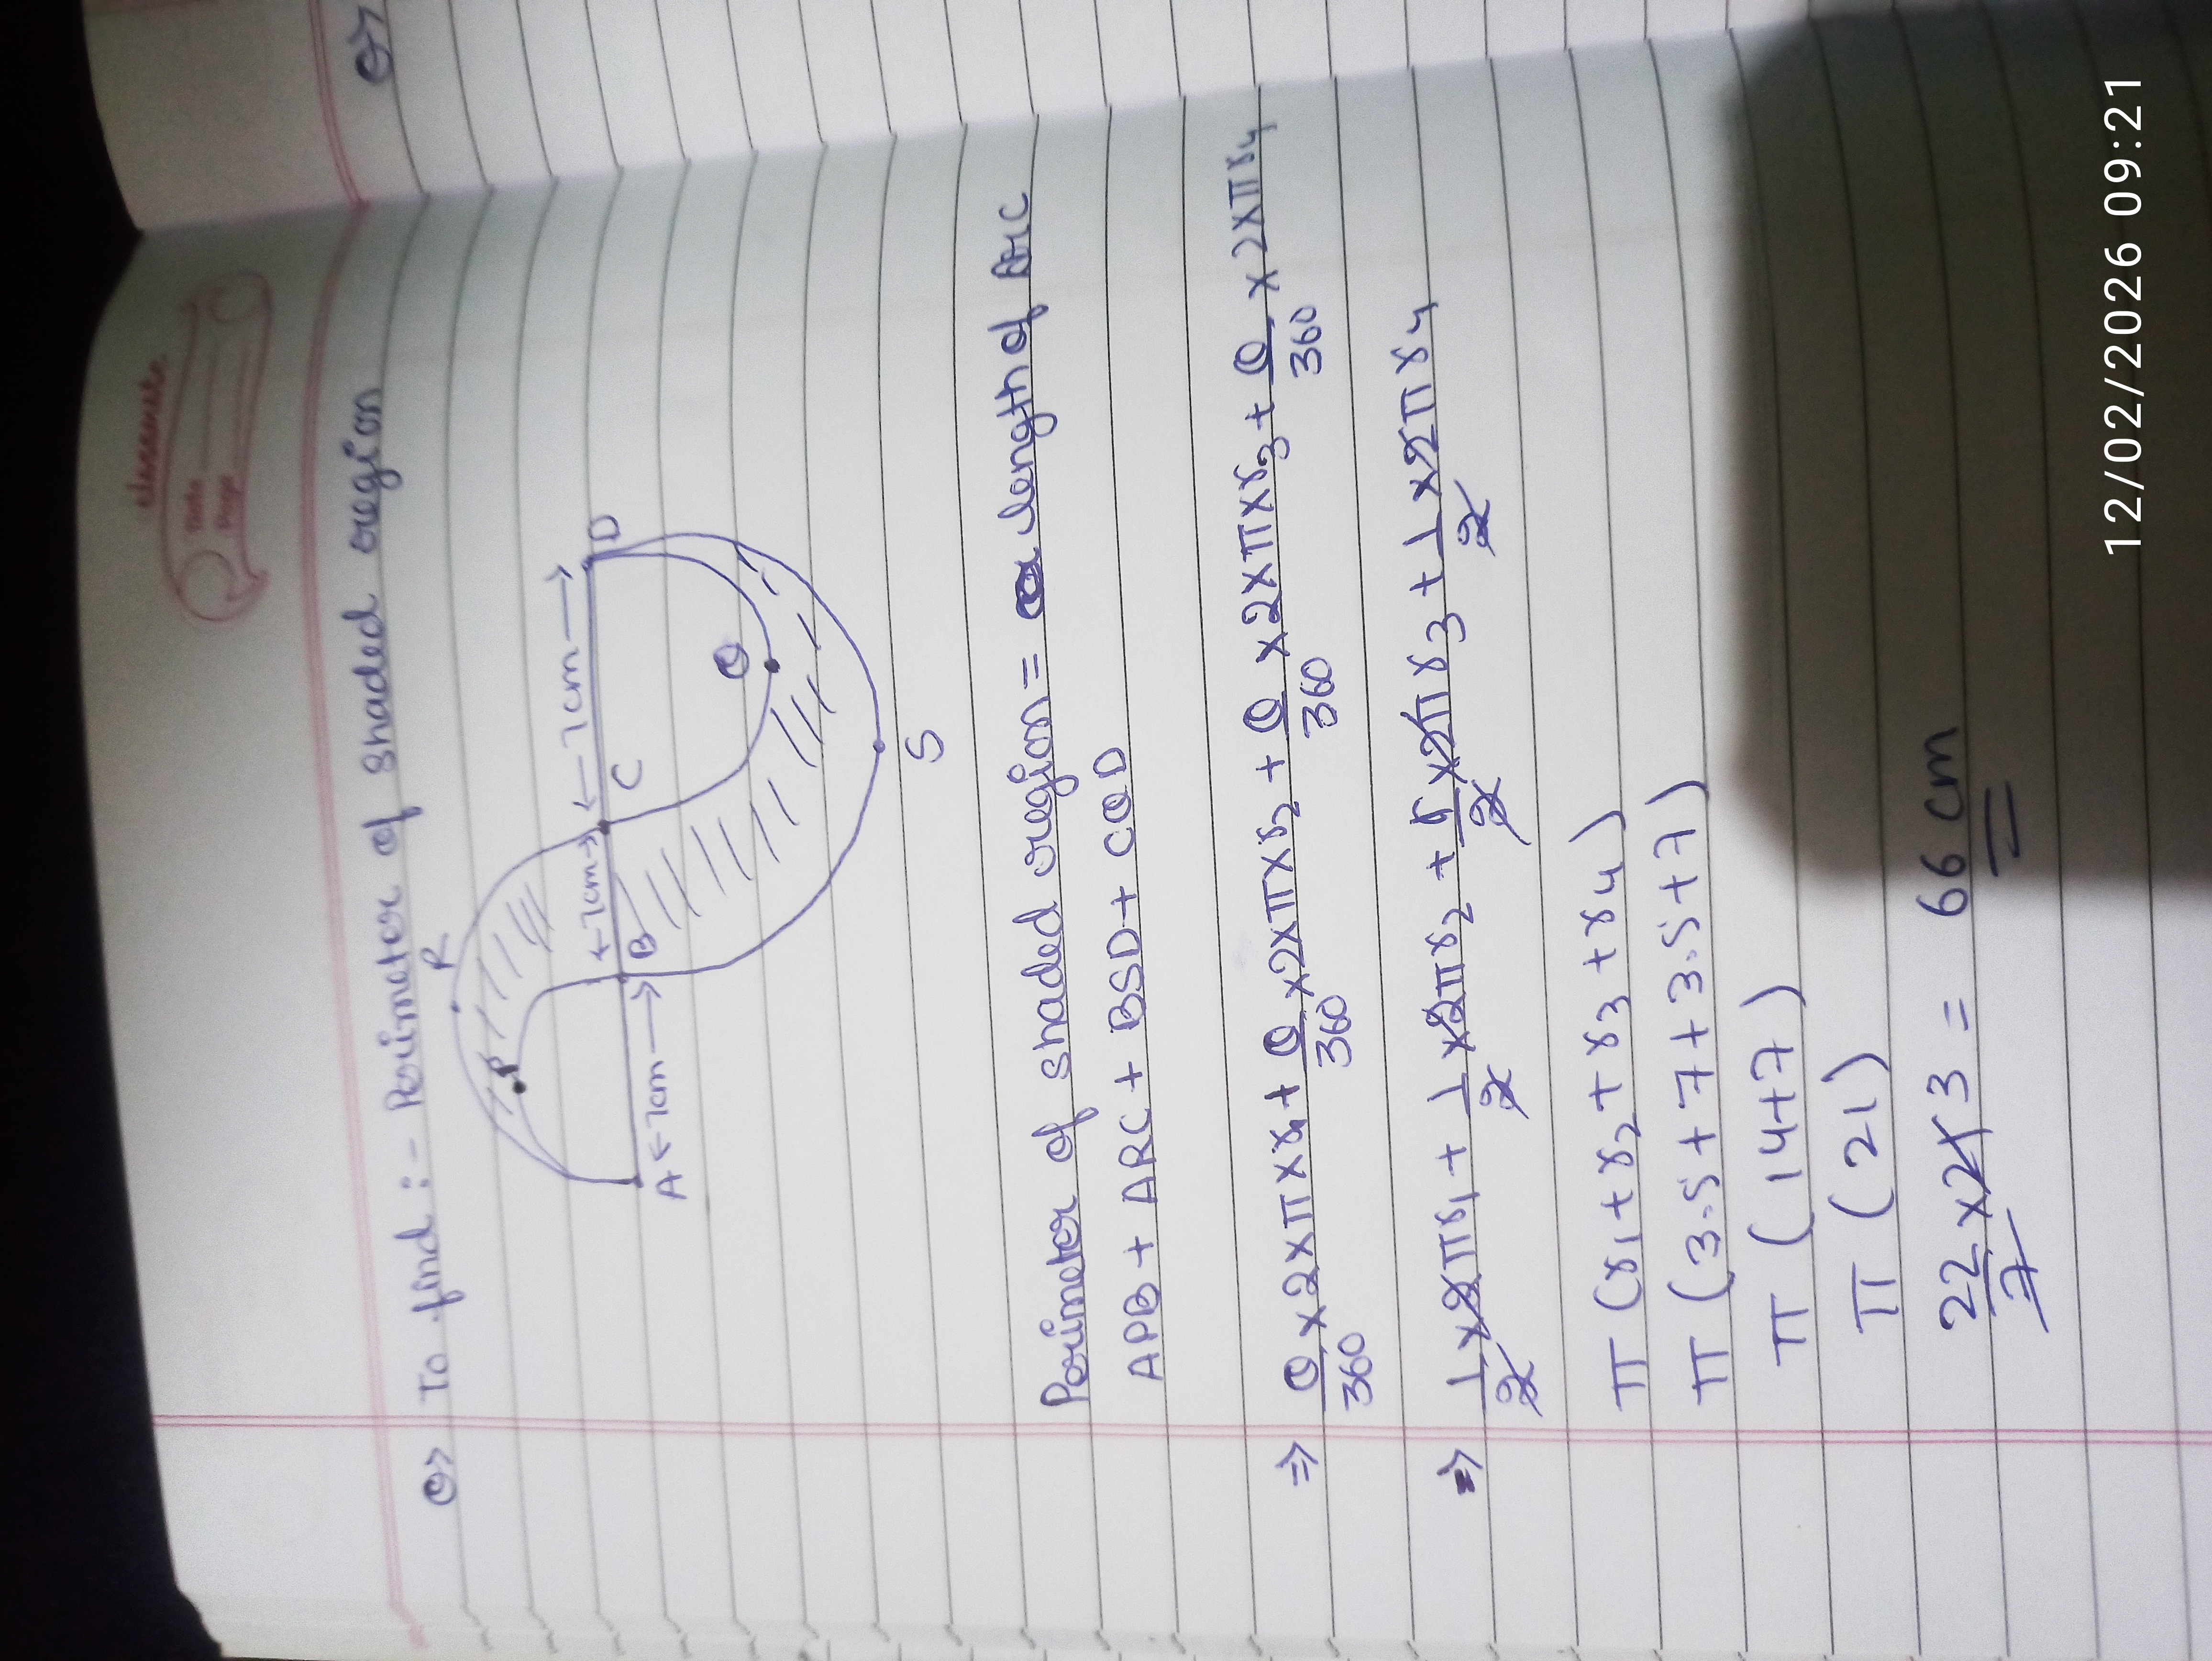 classmate
Date
Page
Q> To find :- Perimeter of shaded region
R
P
←7cm→
←7cm→
D
A
←7cm→
B
C
Q
S
Perimeter of shaded region = length of arc
APB + ARC + BSD + CQD
⇒ θ/360 × 2 × π × r1 + θ/360 × 2 × π × r2 + θ/360 × 2 × π × r3 + θ/360 × 2 × π r4
⇒ 1/2 × 2πr1 + 1/2 × 2πr2 + 1/2 × 2πr3 + 1/2 × 2πr4
π (r1 + r2 + r3 + r4)
π (3.5 + 7 + 3.5 + 7)
π (14+7)
π (21)
22/7 × 21 3 = 66 cm
Q>
12/02/2026 09:21